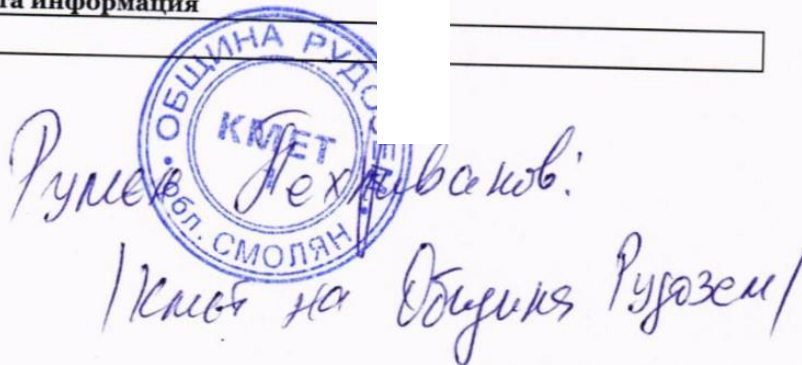 та информация
ОБЩИНА РУДОЗЕМ
КМЕТ
обл. СМОЛЯН
Румен Пехливанов:
/Кмет на Община Рудозем/